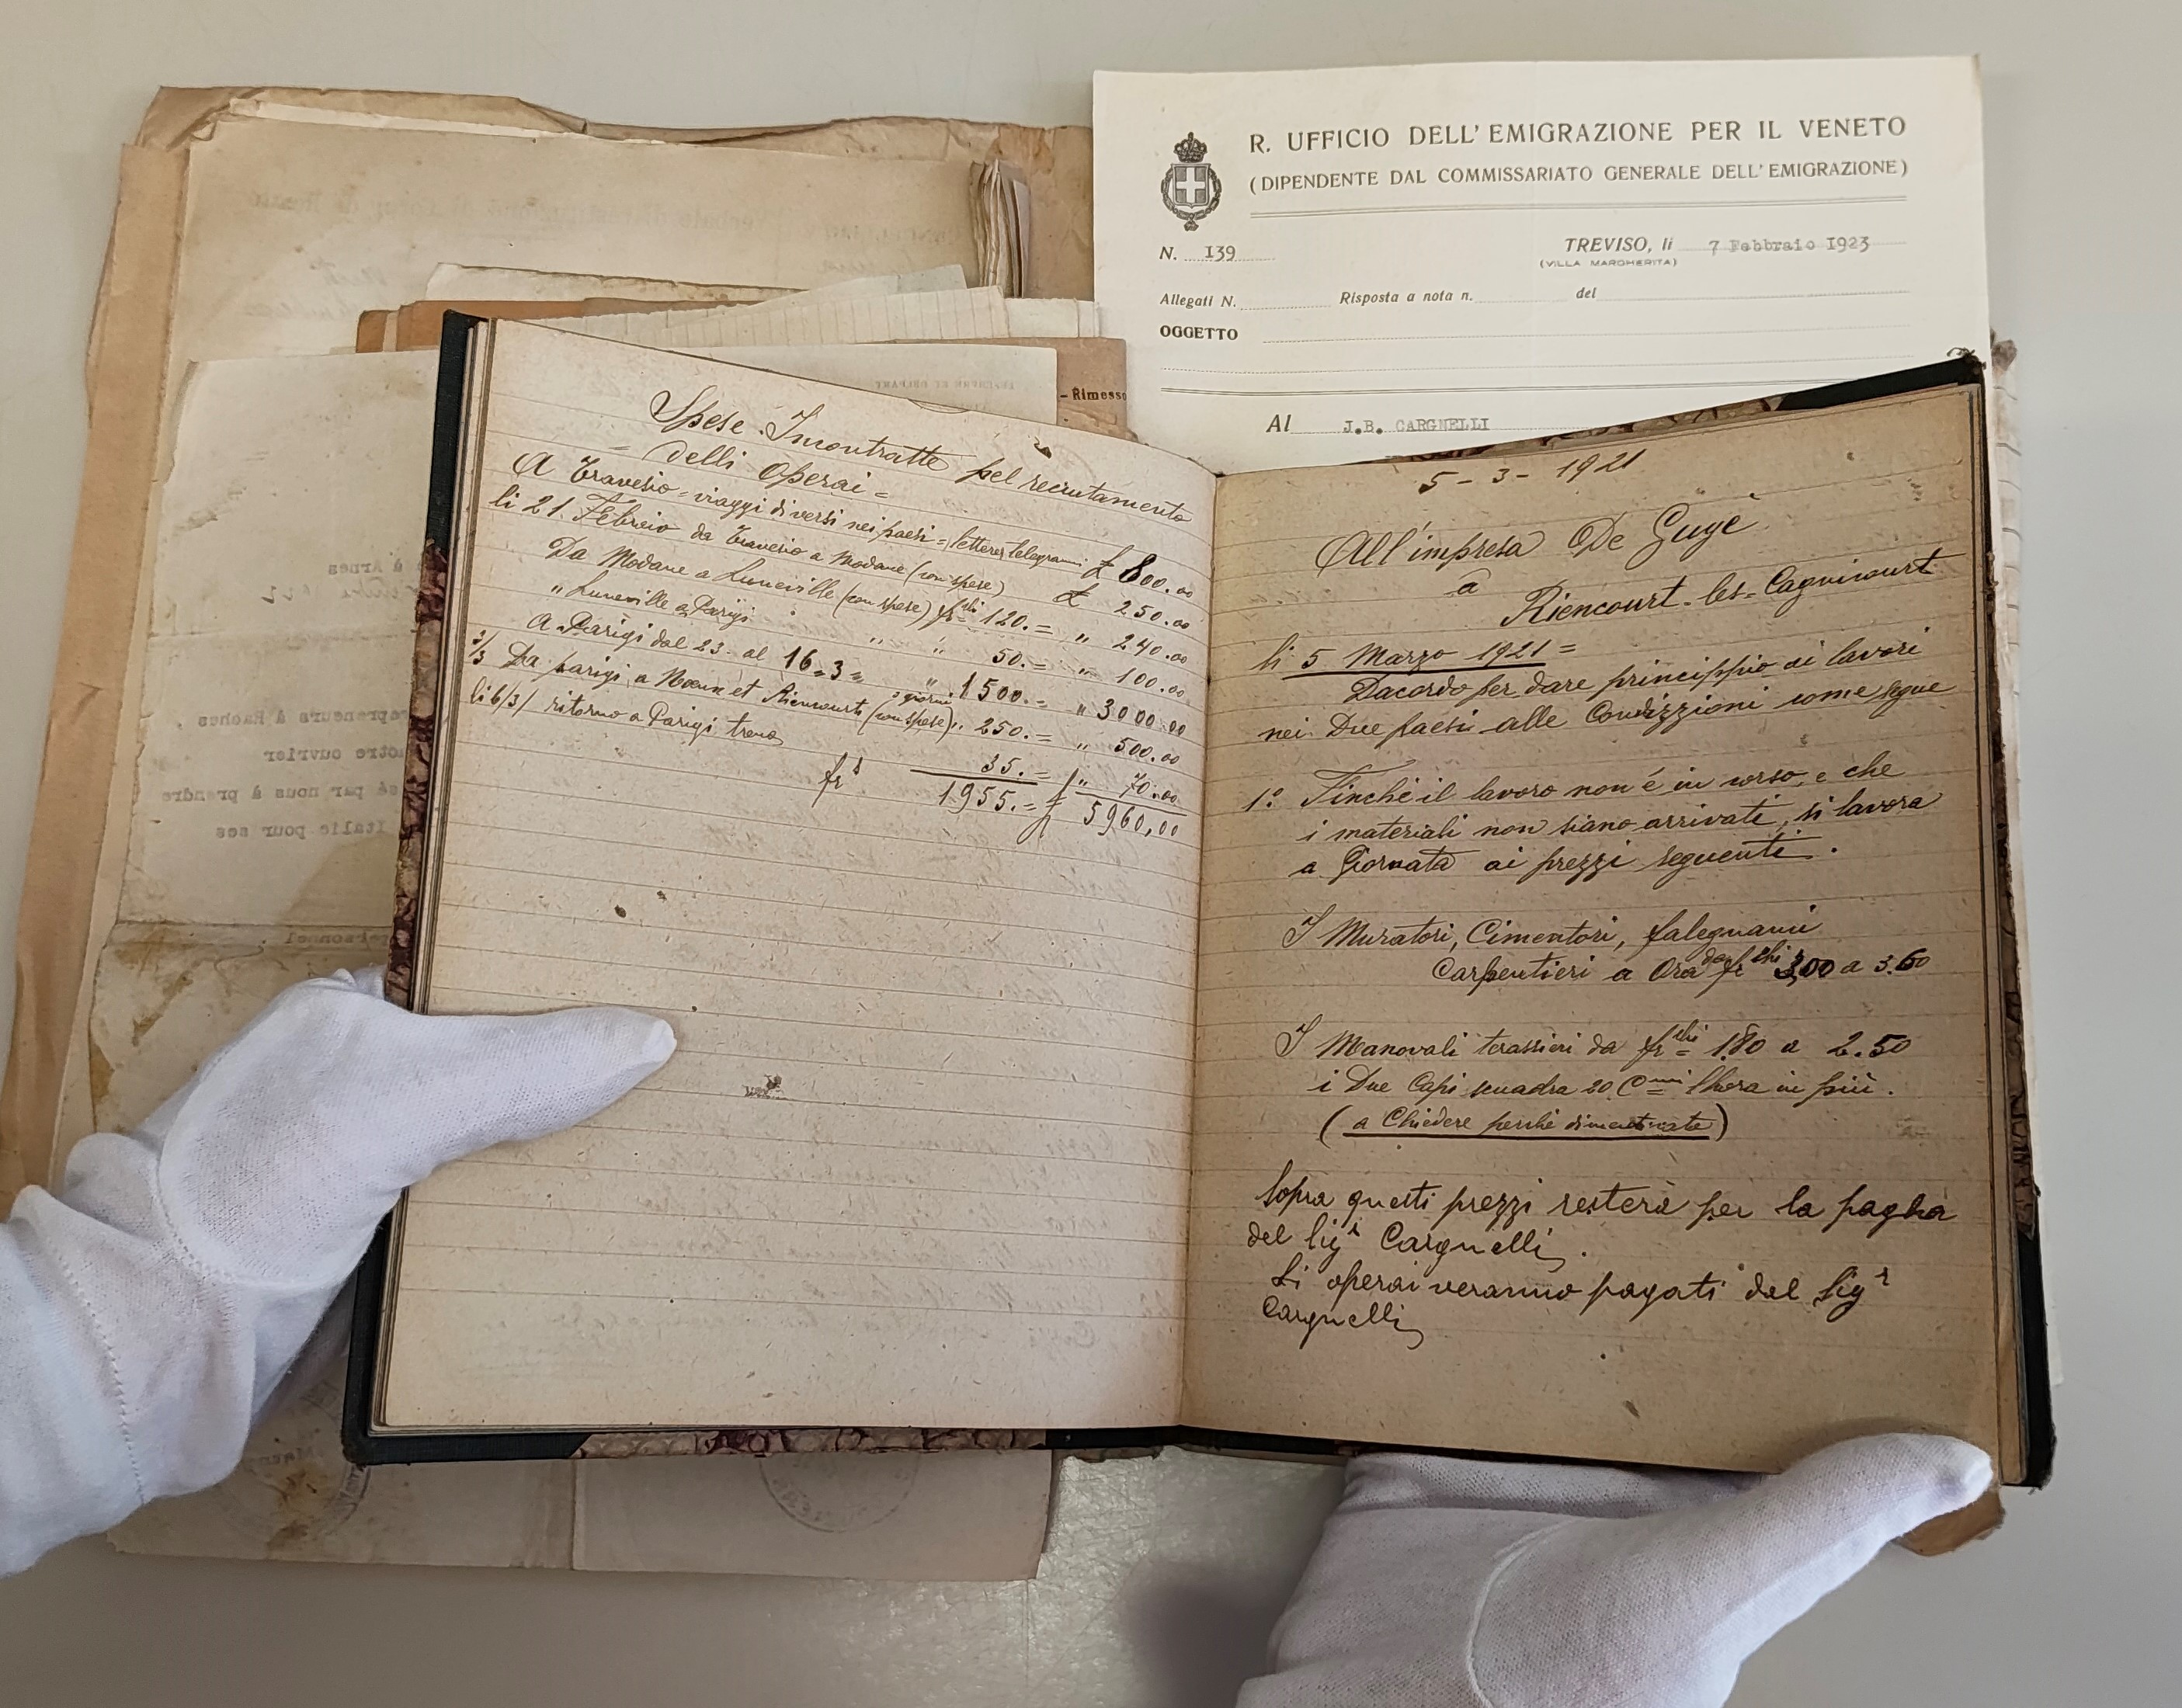 R. UFFICIO DELL' EMIGRAZIONE PER IL VENETO
(DIPENDENTE DAL COMMISSARIATO GENERALE DELL' EMIGRAZIONE)
N. 139
TREVISO, li 7 Febbraio 1923
(VILLA MARGHERITA)
Allegati N. Risposta a nota n. del
OGGETTO
Al J.B. CARGNELLI
- Rimesse
Spese Incontratte pel recrutamento
= delli operai =
A Travesio = viaggi diversi nei paesi = lettere telegrammi £ 800.00
li 21. Febraio da Travesio a Modane (con spese) £ 250.00
Da Modane a Luneville (con spese) fr chi 120.= " 240.00
" Luneville a Parigi " " 50.= " 100.00
A Parigi dal 23. al 16=3= giorni " 1500.= " 3000.00
3/3 Da parigi a et Riencourt (con spese) " 250.= " 500.00
li 6/3/ ritorno a Parigi treno 35.= " 70.00
frs 1955.= £ 5960,00
5 - 3 - 1921
All'impresa De Gugé
a
Riencourt-les-Cagnicourt
li 5 Marzo 1921 =
Dacordo per dare princippio ai lavori
nei Due paesi alle Condizzioni come segue
1.° Finché il lavoro non é in corso, e che
i materiali non siano arrivati, si lavora
a Giornata ai prezzi seguenti.
I Muratori, Cimentori, falegnami
Carpentieri a Ora da fr chi 3,00 a 3.60
I Manovali terassieri da fr chi = 1.80 a 2.50
i Due Capi squadra 20 Cmi lhora in più.
(a Chiedere perché dimenticate)
Sopra questi prezzi resterà per la pagha
del Sigr Cargnelli.
Li operai veranno pagati dal Sigr
Cargnelli